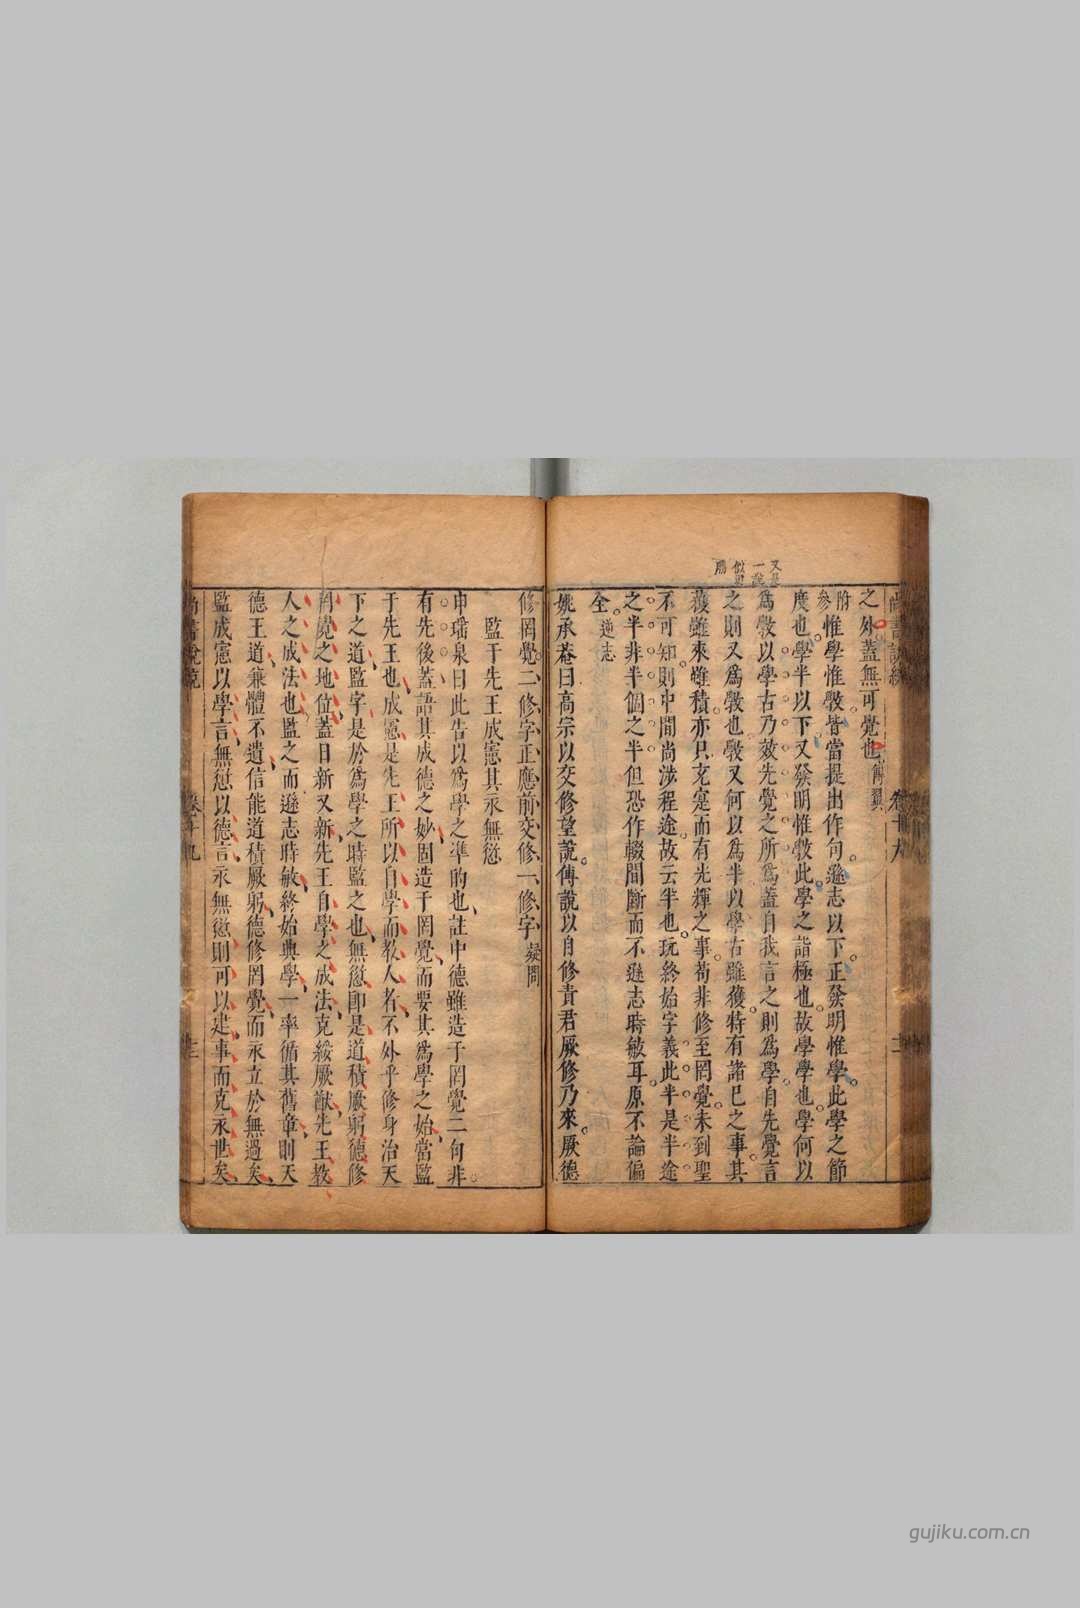 又是
一說
似
勝
之外蓋無可覺也
附
參
惟學惟斆皆當提出作句遜志以下正發明惟學此學之節
度也學半以下又發明惟斆此學之詣極也故學學也學何以
為斆以學古乃效先覺之所為蓋自我言之則為學自先覺言
之則又為斆也斆又何以為半以學古雖獲特有諸己之事其
獲雖來雖積亦只充寔而有光輝之事苟非修至罔覺未到聖
不可知則中間尚涉程途故云半也玩終始字義此半是半途
之半非半個之半但恐作輟間斷而不遜志時敏耳原不論偏
全 遜志
姚承菴曰高宗以交修望說傅說以自修責君厥修乃來厥德
修罔覺二修字正應前交修一修字 疑問
監于先王成憲其永無愆
申瑤泉曰此告以為學之準的也註中德雖造于罔覺二句非
有先後蓋語其成德之妙固造于罔覺而要其為學之始當監
于先王也成憲是先王所以自學而教人者不外乎修身治天
下之道監字是於為學之時監之也無愆即是道積厥躬德修
罔覺之地位蓋日新又新先王自學之成法克綏厥猷先王教
人之成法也監之而遜志時敏終始典學一率循其舊章則天
德王道兼體不遺信能道積厥躬德修罔覺而永立於無過矣
監成憲以學言無愆以德言永無愆則可以建事而克永世矣
卷十九